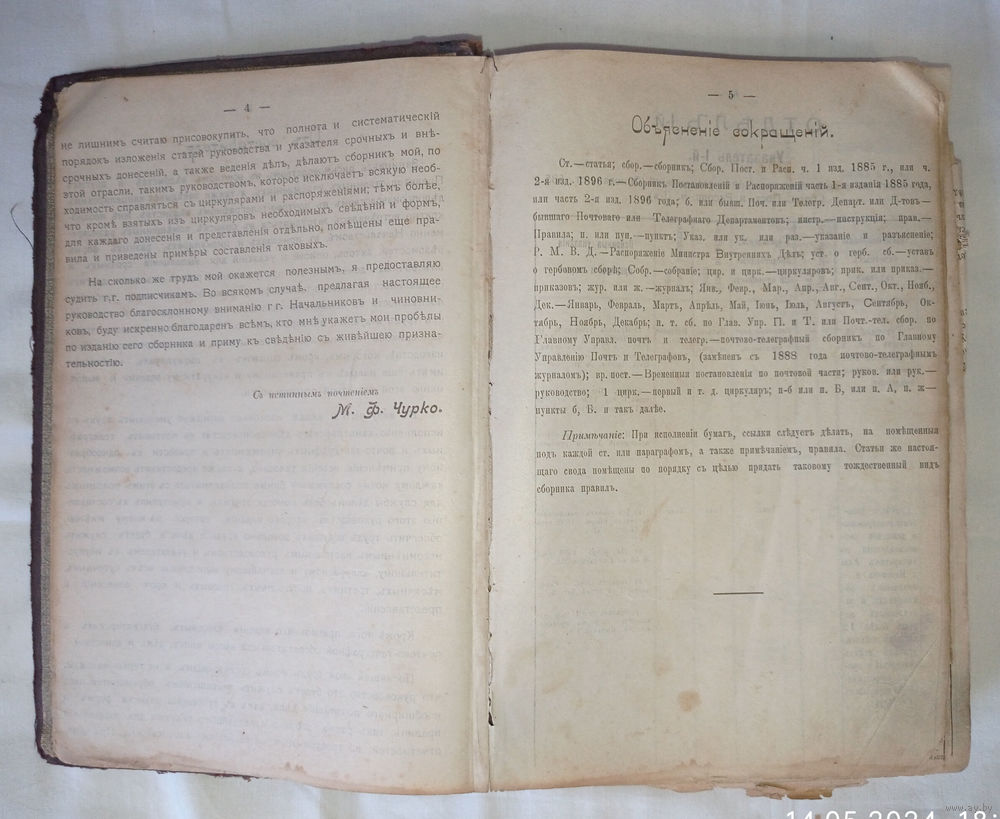 — 4 —
не лишнимъ считаю присовокупить, что полнота и систематическій
порядокъ изложенія статей руководства и указателя срочныхъ и внѣ-
срочныхъ донесеній, а также веденія дѣлъ, дѣлаютъ сборникъ мой, по
этой отрасли, такимъ руководствомъ, которое исключаетъ всякую необ-
ходимость справляться съ циркулярами и распоряженіями; тѣмъ болѣе,
что кромѣ взятыхъ изъ циркуляровъ необходимыхъ свѣдѣній и формъ,
для каждаго донесенія и представленія отдѣльно, помѣщены еще пра-
вила и приведены примѣры составленія таковыхъ.
На сколько же трудъ мой окажется полезнымъ, я предоставляю
судить г.г. подписчикамъ. Во всякомъ случаѣ, предлагая настоящее
руководство благосклонному вниманію г г. Начальниковъ и чиновни-
ковъ, буду искренно благодаренъ всѣмъ, кто мнѣ укажетъ мои пробѣлы
по изданію сего сборника и приму къ свѣдѣнію съ живѣйшею призна-
тельностію.
Съ истиннымъ почтеніемъ
М. Ф. Чурко.
— 5 —
Объясненіе сокращеній.
Ст.—статья; сбор.—сборникъ; Сбор. Пост. и Расп. ч. 1 изд. 1885 г., или ч.
2-я изд. 1896 г.—Сборникъ Постановленій и Распоряженій часть 1-я изданія 1885 года,
или часть 2-я изд. 1896 года; б. или бывш. Поч. или Телегр. Департ. или Д-товъ—
бывшаго Почтоваго или Телеграфнаго Департаментовъ; инстр.—инструкція; прав.—
Правила; п. или пун.—пунктъ; Указ. или ук. или раз.—указаніе и разъясненіе;
Р. М. В. Д.—Распоряженіе Министра Внутреннихъ Дѣлъ; уст. о герб. сб.—уставъ
о гербовомъ сборѣ; Собр.—собраніе; цир. и цирк.—циркуляръ; прик. или приказ.—
приказовъ; жур. или ж.—журналъ; Янв., Февр., Мар., Апр., Авг., Сент., Окт., Нояб.,
Дек.—Январь, Февраль, Мартъ, Апрѣль, Май, Іюнь, Іюль, Августъ, Сентябрь, Ок-
тябрь, Ноябрь, Декабрь; п. т. сб. по Глав. Упр. П. и Т. или Почт.-тел. сбор. по
Главному Управл. почт. и телегр.—почтово-телеграфный сборникъ по Главному
Управленію Почтъ и Телеграфовъ, (замѣненъ съ 1888 года почтово-телеграфнымъ
журналомъ); вр. пост.—Временныя постановленія по почтовой части; руков. или рук.—
руководство; 1 цирк.—первый и т. д. циркуляръ; п-б или п. Б, или п. А, п. ж—
пункты б, Б. и такъ далѣе.
Примѣчаніе: При исполненіи бумагъ, ссылки слѣдуетъ дѣлать, на помѣщенныя
подъ каждой ст. или параграфомъ, а также примѣчаніемъ, правила. Статьи же настоя-
щаго свода помѣщены по порядку съ цѣлью придать таковому тождественный видъ
сборника правилъ.
www.ay.by